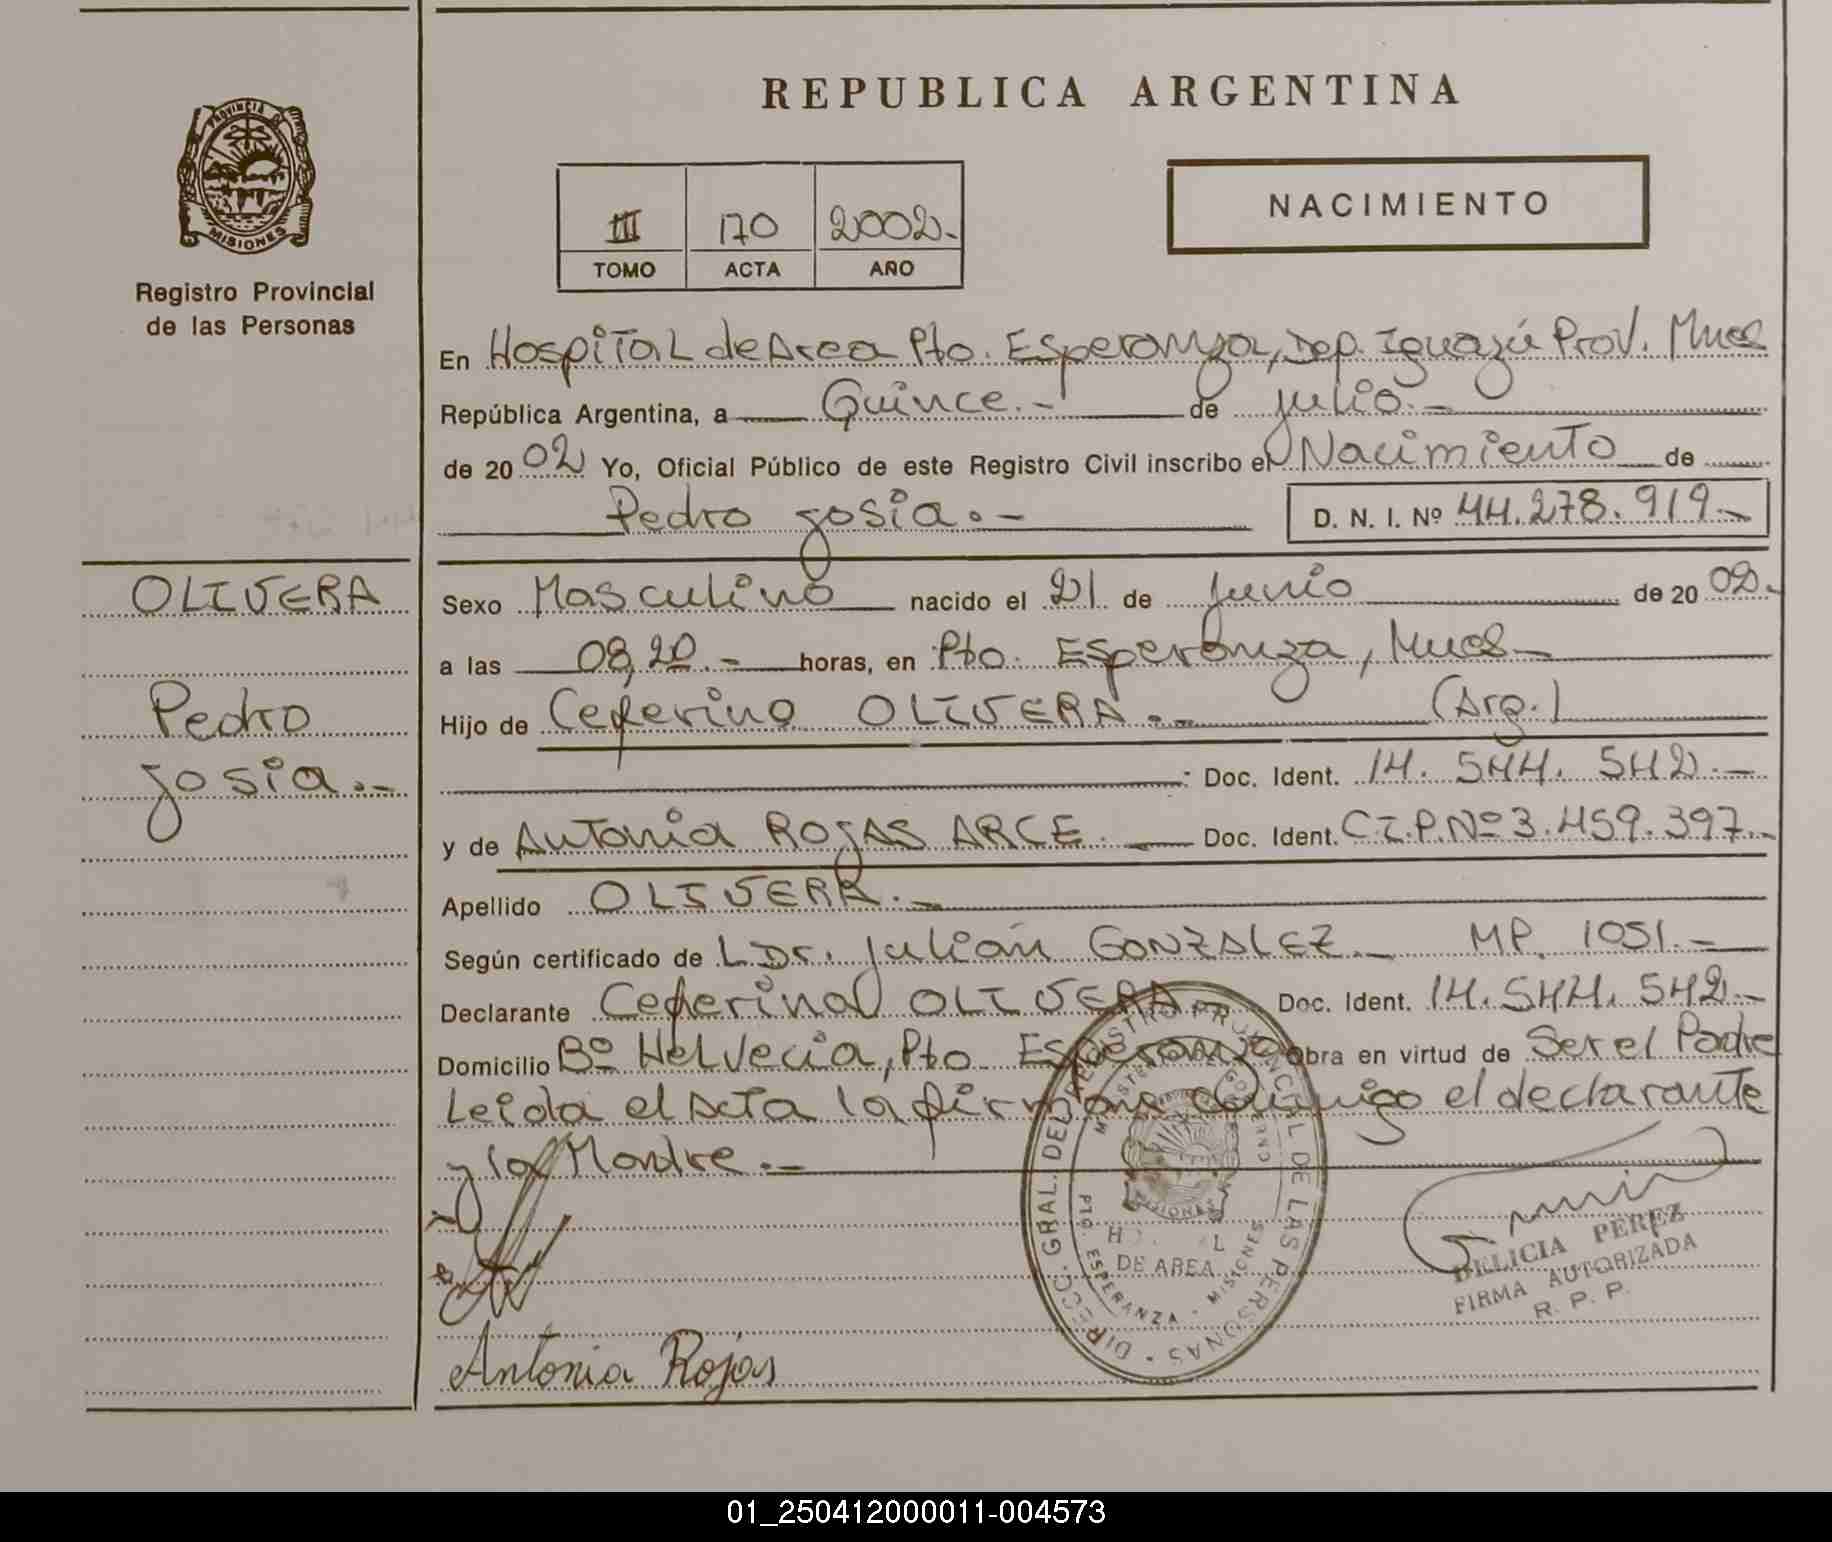 PROVINCIA DE
MISIONES
Registro Provincial
de las Personas
REPUBLICA ARGENTINA
III 170 2002.-
TOMO ACTA AÑO
NACIMIENTO
En Hospital de Area Pto. Esperanza, Dep. Iguazú Prov. Mnes
República Argentina, a Quince.- de julio.-
de 2002 Yo, Oficial Público de este Registro Civil inscribo el Nacimiento de
Pedro Josia.- D. N. I. Nº 44.278.919.-
OLIVERA
Pedro
Josia.-
Sexo Masculino nacido el 21 de Junio de 2002.-
a las 08,20.- horas, en Pto. Esperanza, Mnes.-
Hijo de Ceferino OLIVERA.- (Arg.)
Doc. Ident. 14.544.542.-
y de Antonia ROJAS ARCE.- Doc. Ident. C.I.P.Nº 3.459.397.-
Apellido OLIVERA.-
Según certificado de L Dr. Julián GONZALEZ.- MP. 1051.-
Declarante Ceferino OLIVERA.- Doc. Ident. 14.544.542.-
Domicilio Bº Helvecia, Pto. Esperanza Obra en virtud de Ser el Padre
Leida el Acta la firman conmigo el declarante
y la Madre.-
DIRECC. GRAL. DEL REGISTRO PROVINCIAL DE LAS PERSONAS
MINISTERIO DE GOBIERNO
DE AREA
PTO. ESPERANZA - MISIONES
DELICIA PEREZ
FIRMA AUTORIZADA
R. P. P.
Antonia Rojas
01_250412000011-004573